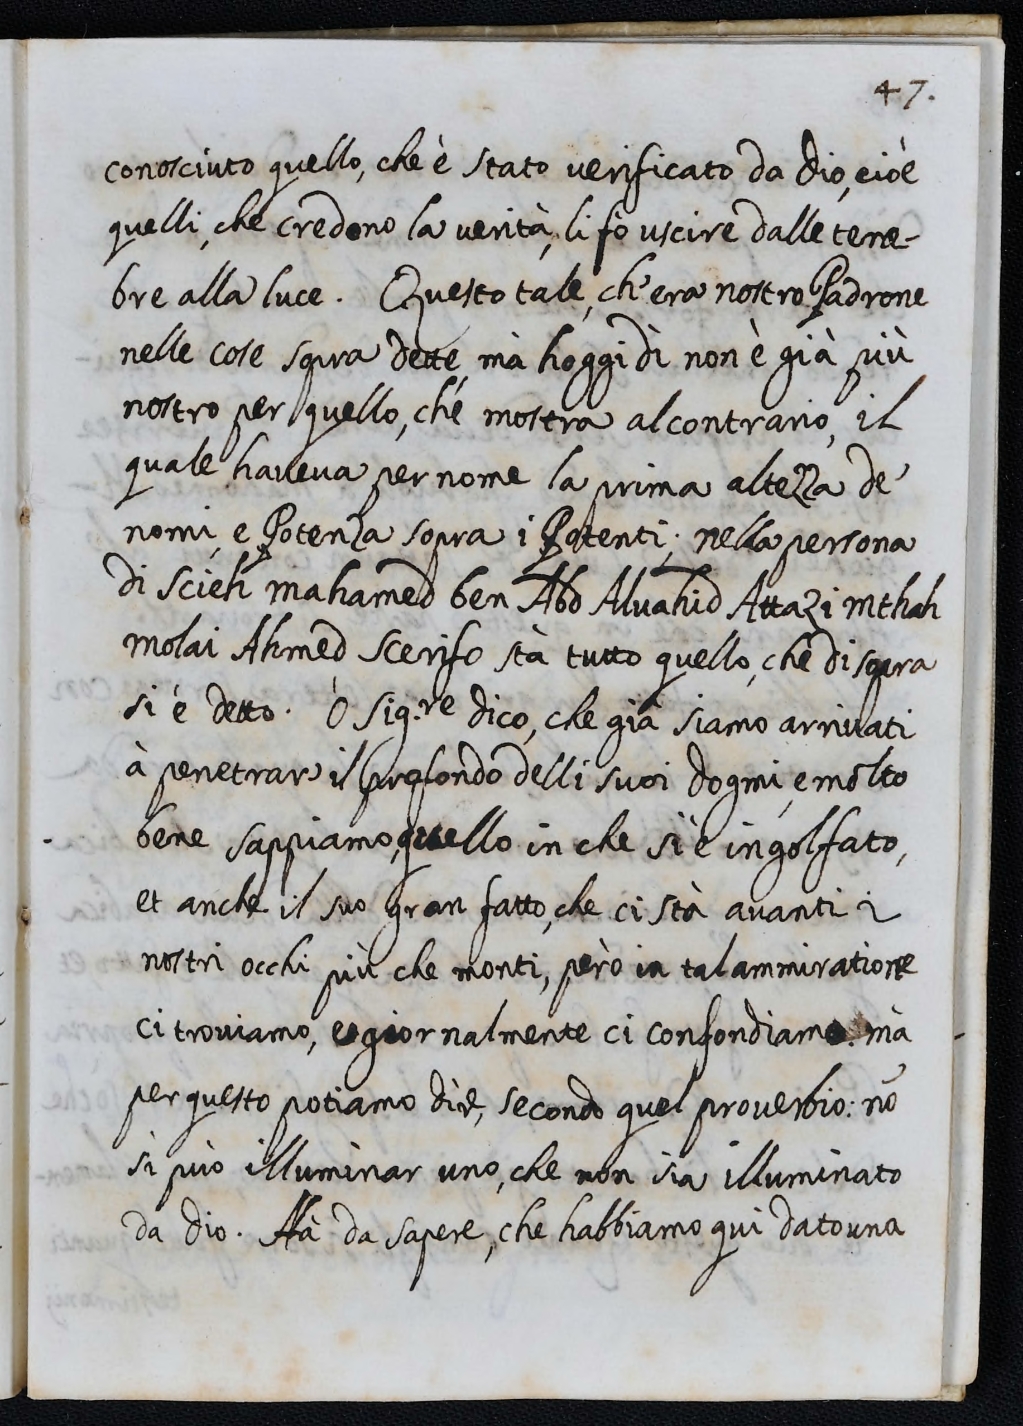 47.
conosciuto quello, che è stato verificato da Dio, cioè
quelli, che credono la verità, li fò uscire dalle tene-
bre alla luce. Questo tale, ch'era nostro Padrone
nelle cose sopra dette, mà hoggi dì non è già più
nostro per quello, che mostra al contrario, il
quale haueua per nome la prima altezza de'
nomi, e Potenza sopra i Potenti; nella persona
di Scieh mahamed ben Abd Aluahid Attazi mthah
molai Ahmed Scerife stà tutto quello, che di sopra
si è detto. O Sig.re dico, che già siamo arriuati
à penetrar il profondo delli suoi dogmi, e molto
bene sappiamo, quello in che si è ingolfato,
et anche il suo gran fatto, che ci stà auanti i
nostri occhi più che monti, però in tal ammiratione
ci trouiamo, e giornalmente ci confondiamo. mà
per questo potiamo dire, secondo quel prouerbio: nō
si può illuminar uno, che non sia illuminato
da Dio. Hà da sapere, che habbiamo qui dato una